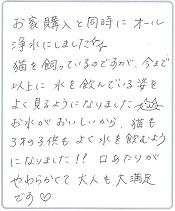 お家購入と同時に オール
浄水にしましたが
猫を飼っているのですが、今まで
以上に 水を飲んでいる姿を
よく見るようになりました
お水がおいしいから、猫も
3才の子供も よく水を飲むよう
になりました!! 口あたりが
やわらかくて 大人も大満足
です♡